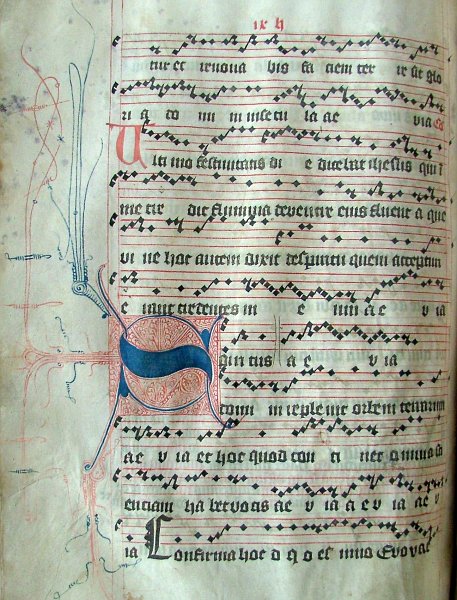 ix h
tur et renova bis fa ciem ter re sit glo
ri a do mi ni in secu la ae via Co
Ulti mo festivitatis di e dicebat ihesus qui i
me cre dit flumina de ventre eius fluent a que
vi ve hoc autem dixit de spiritu quem accepturi
e rant credentes in e um ae v ia
Spiritus ae v ia
domi ni replevit orbem terrarum
ae v ia et hoc quod con ti net omnia sci
entiam ha bet vocis ae v ia a e v ia ae v
ia Confirma hoc d q o es in no Evovae